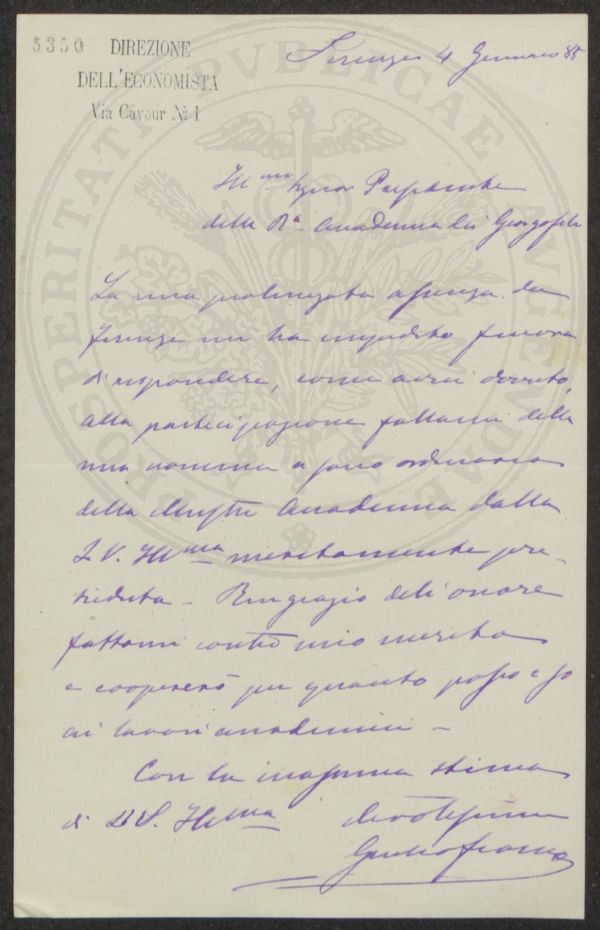 5350 DIREZIONE
DELL'ECONOMISTA
Via Cavour N° 1
Firenze 4 Gennaio 85
Ill.mo Signor Presidente
della R.a Accademia dei Georgofili
La mia prolungata assenza da
Firenze mi ha impedito finora
di rispondere, come avrei dovuto,
alla partecipazione fattami della
mia nomina a socio ordinario
della illustre Accademia dalla
S. V. Ill.ma meritamente pre-
sieduta - Ringrazio dell'onore
fattomi contro mio merito
e coopererò per quanto posso e so
ai lavori accademici -
Con la massima stima
di V.S. Ill.ma devotissimo
Giulio Franco
PROSPERITATI PVBLICAE AVGENDAE